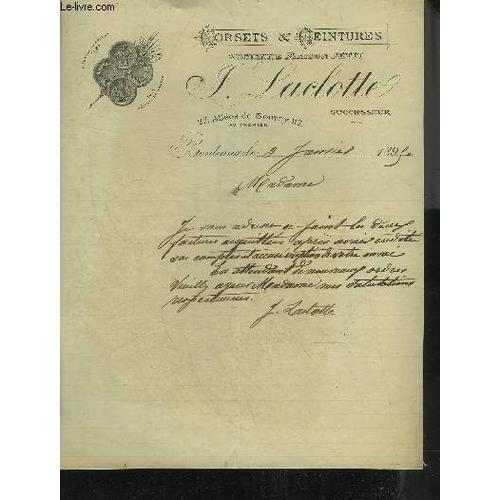 Le-livre.com
CORSETS & CEINTURES
ANCIENNE MAISON PETIT
J. Laclotte
SUCCESSEUR
27, Allées de Tourny, 27
AU PREMIER
Bordeaux, le 2 Janvier 189
Madame
Je vous adresse ci-joint les deux
factures acquittées après avoir crédité
vos comptes et accusé réception de votre envoi
En attendant de nouveaux ordres
Veuillez agréer Madame mes salutations
respectueuses.
J. Laclotte